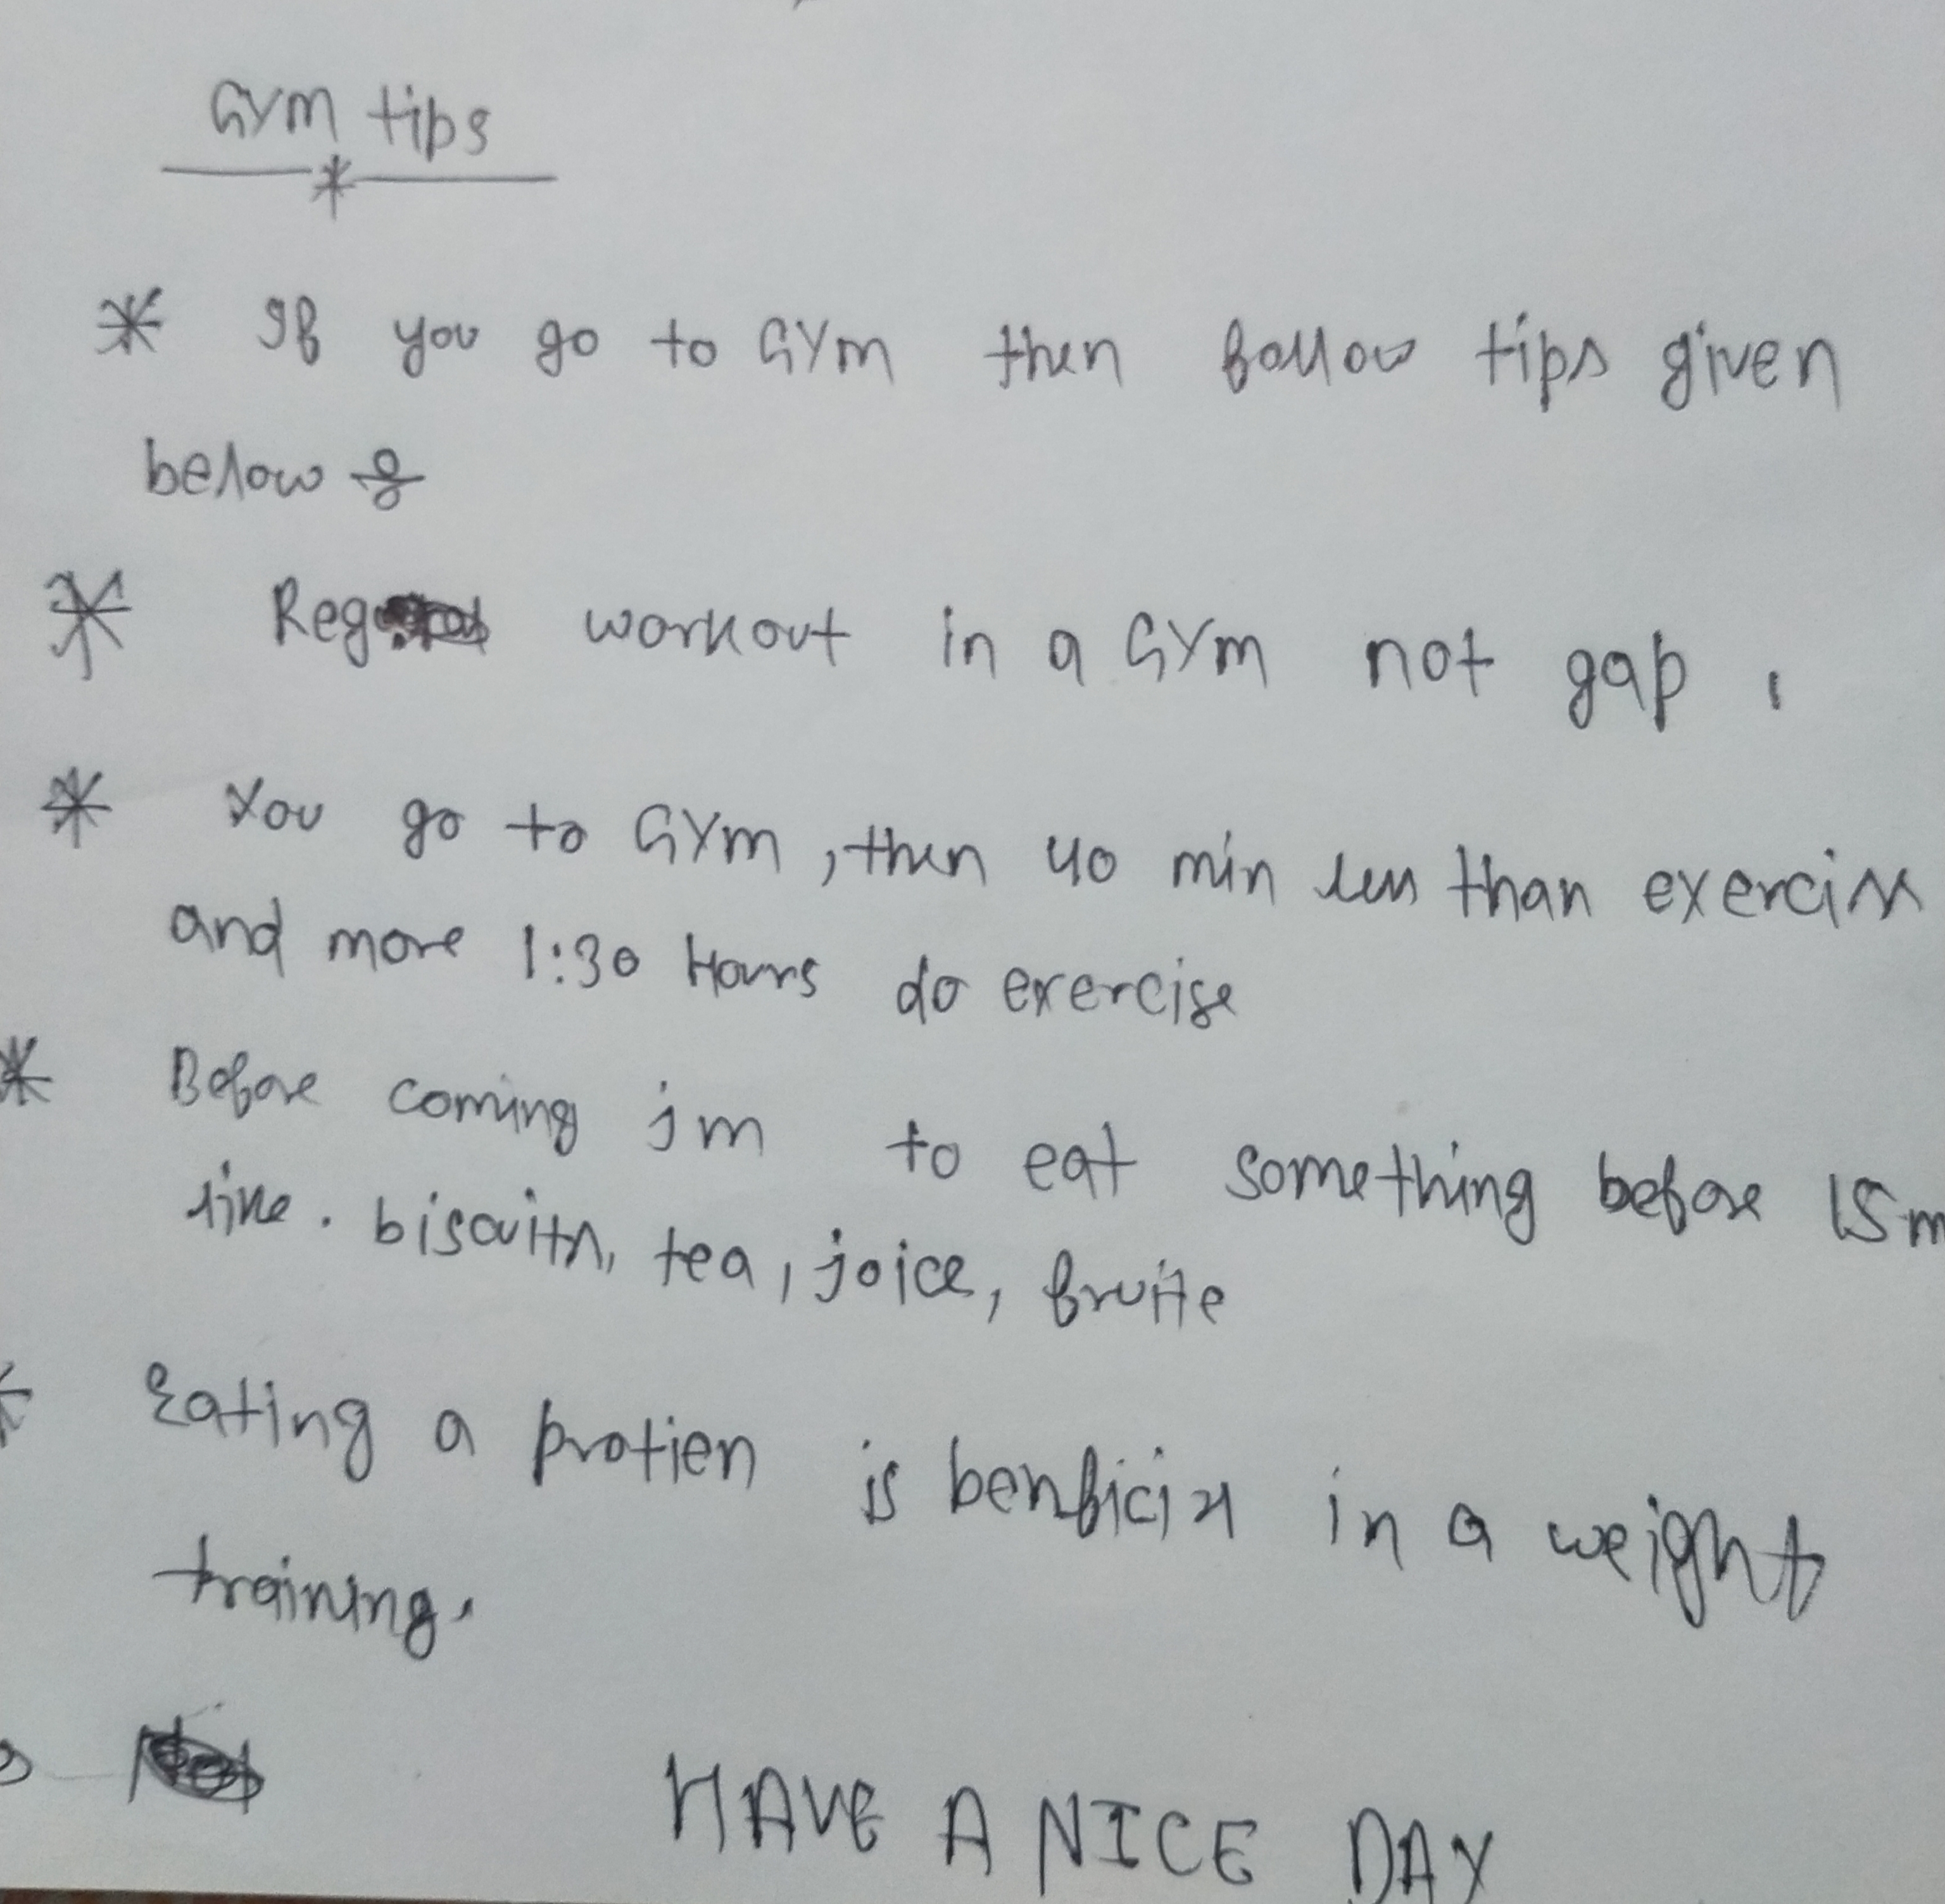 Gym tips
* If you go to Gym then follow tips given
below :-
* workout in a Gym not gap,
* You go to Gym, then 40 min less than exercise
and more 1:30 Hours do exercise
* Before coming jm to eat something before 15 m
like. biscuits, tea, joice, fruite
* Eating a protien is benficial in a weight
training.
HAVE A NICE DAY